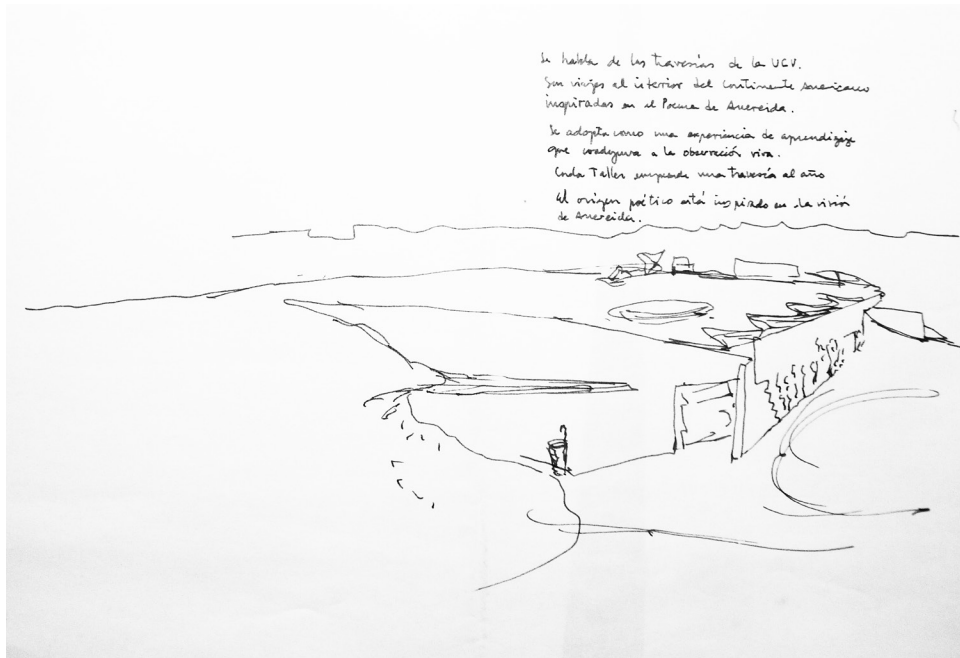 Se habla de las travesías de la UCV.
Son viajes al interior del continente americano
inspiradas en el Poema de Amereida.
Se adopta como una experiencia de aprendizaje
que coadyuva a la observación viva.
Cada Taller emprende una travesía al año
El origen poético está inspirado en la visión
de Amereida.